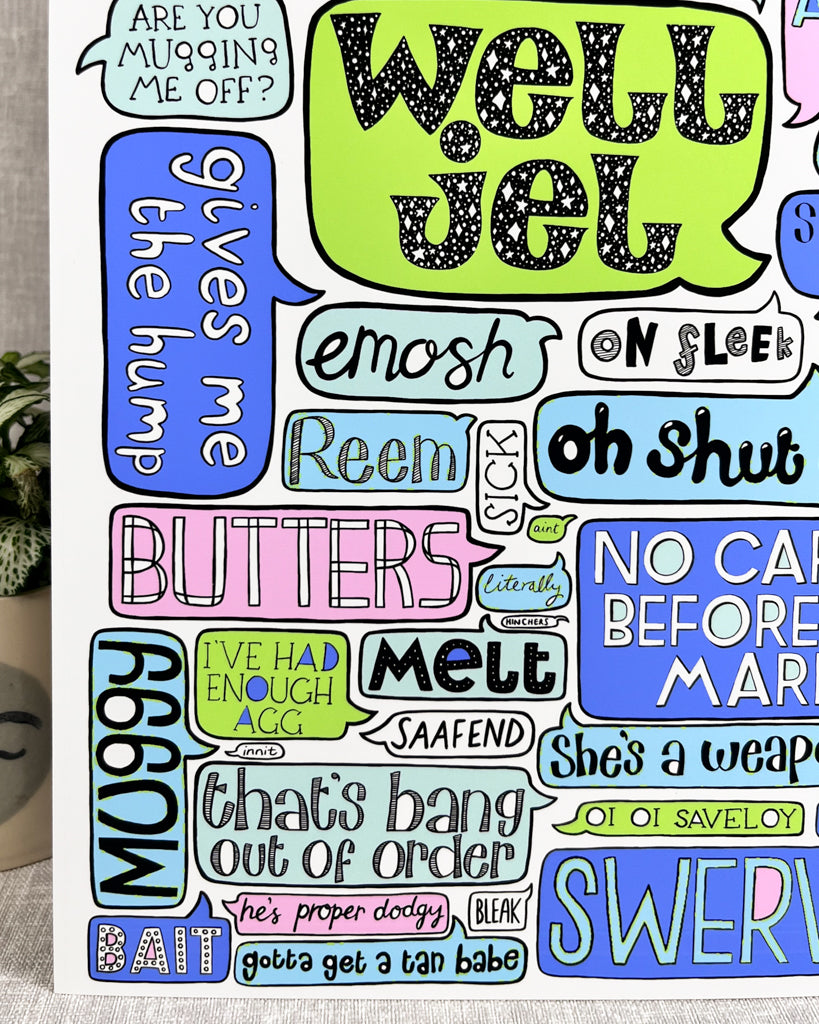 ARE YOU
MUGGING
ME OFF?
Well
jel
gives me
the hump
emosh
ON fLeeK
Reem
SICK
oh shut
aint
BUTTERS
literally
HINCHERS
NO CAR
BEFORE
MAR
MUGGY
I'VE HAD
ENOUGH
AGG
Melt
SAAFEND
innit
She's a weapo
that's bang
out of order
OI OI SAVELOY
SWERV
he's proper dodgy
BLEAK
BAIT
gotta get a tan babe